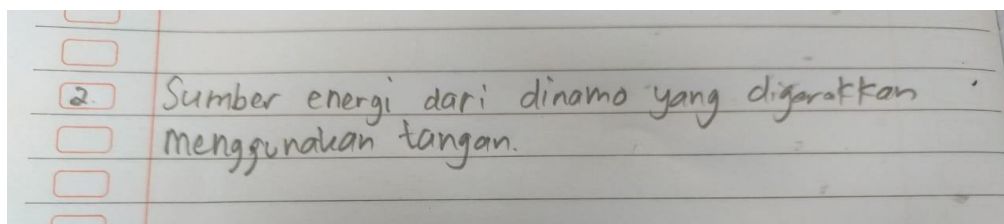 2. Sumber energi dari dinamo yang digerakkan
menggunakan tangan.